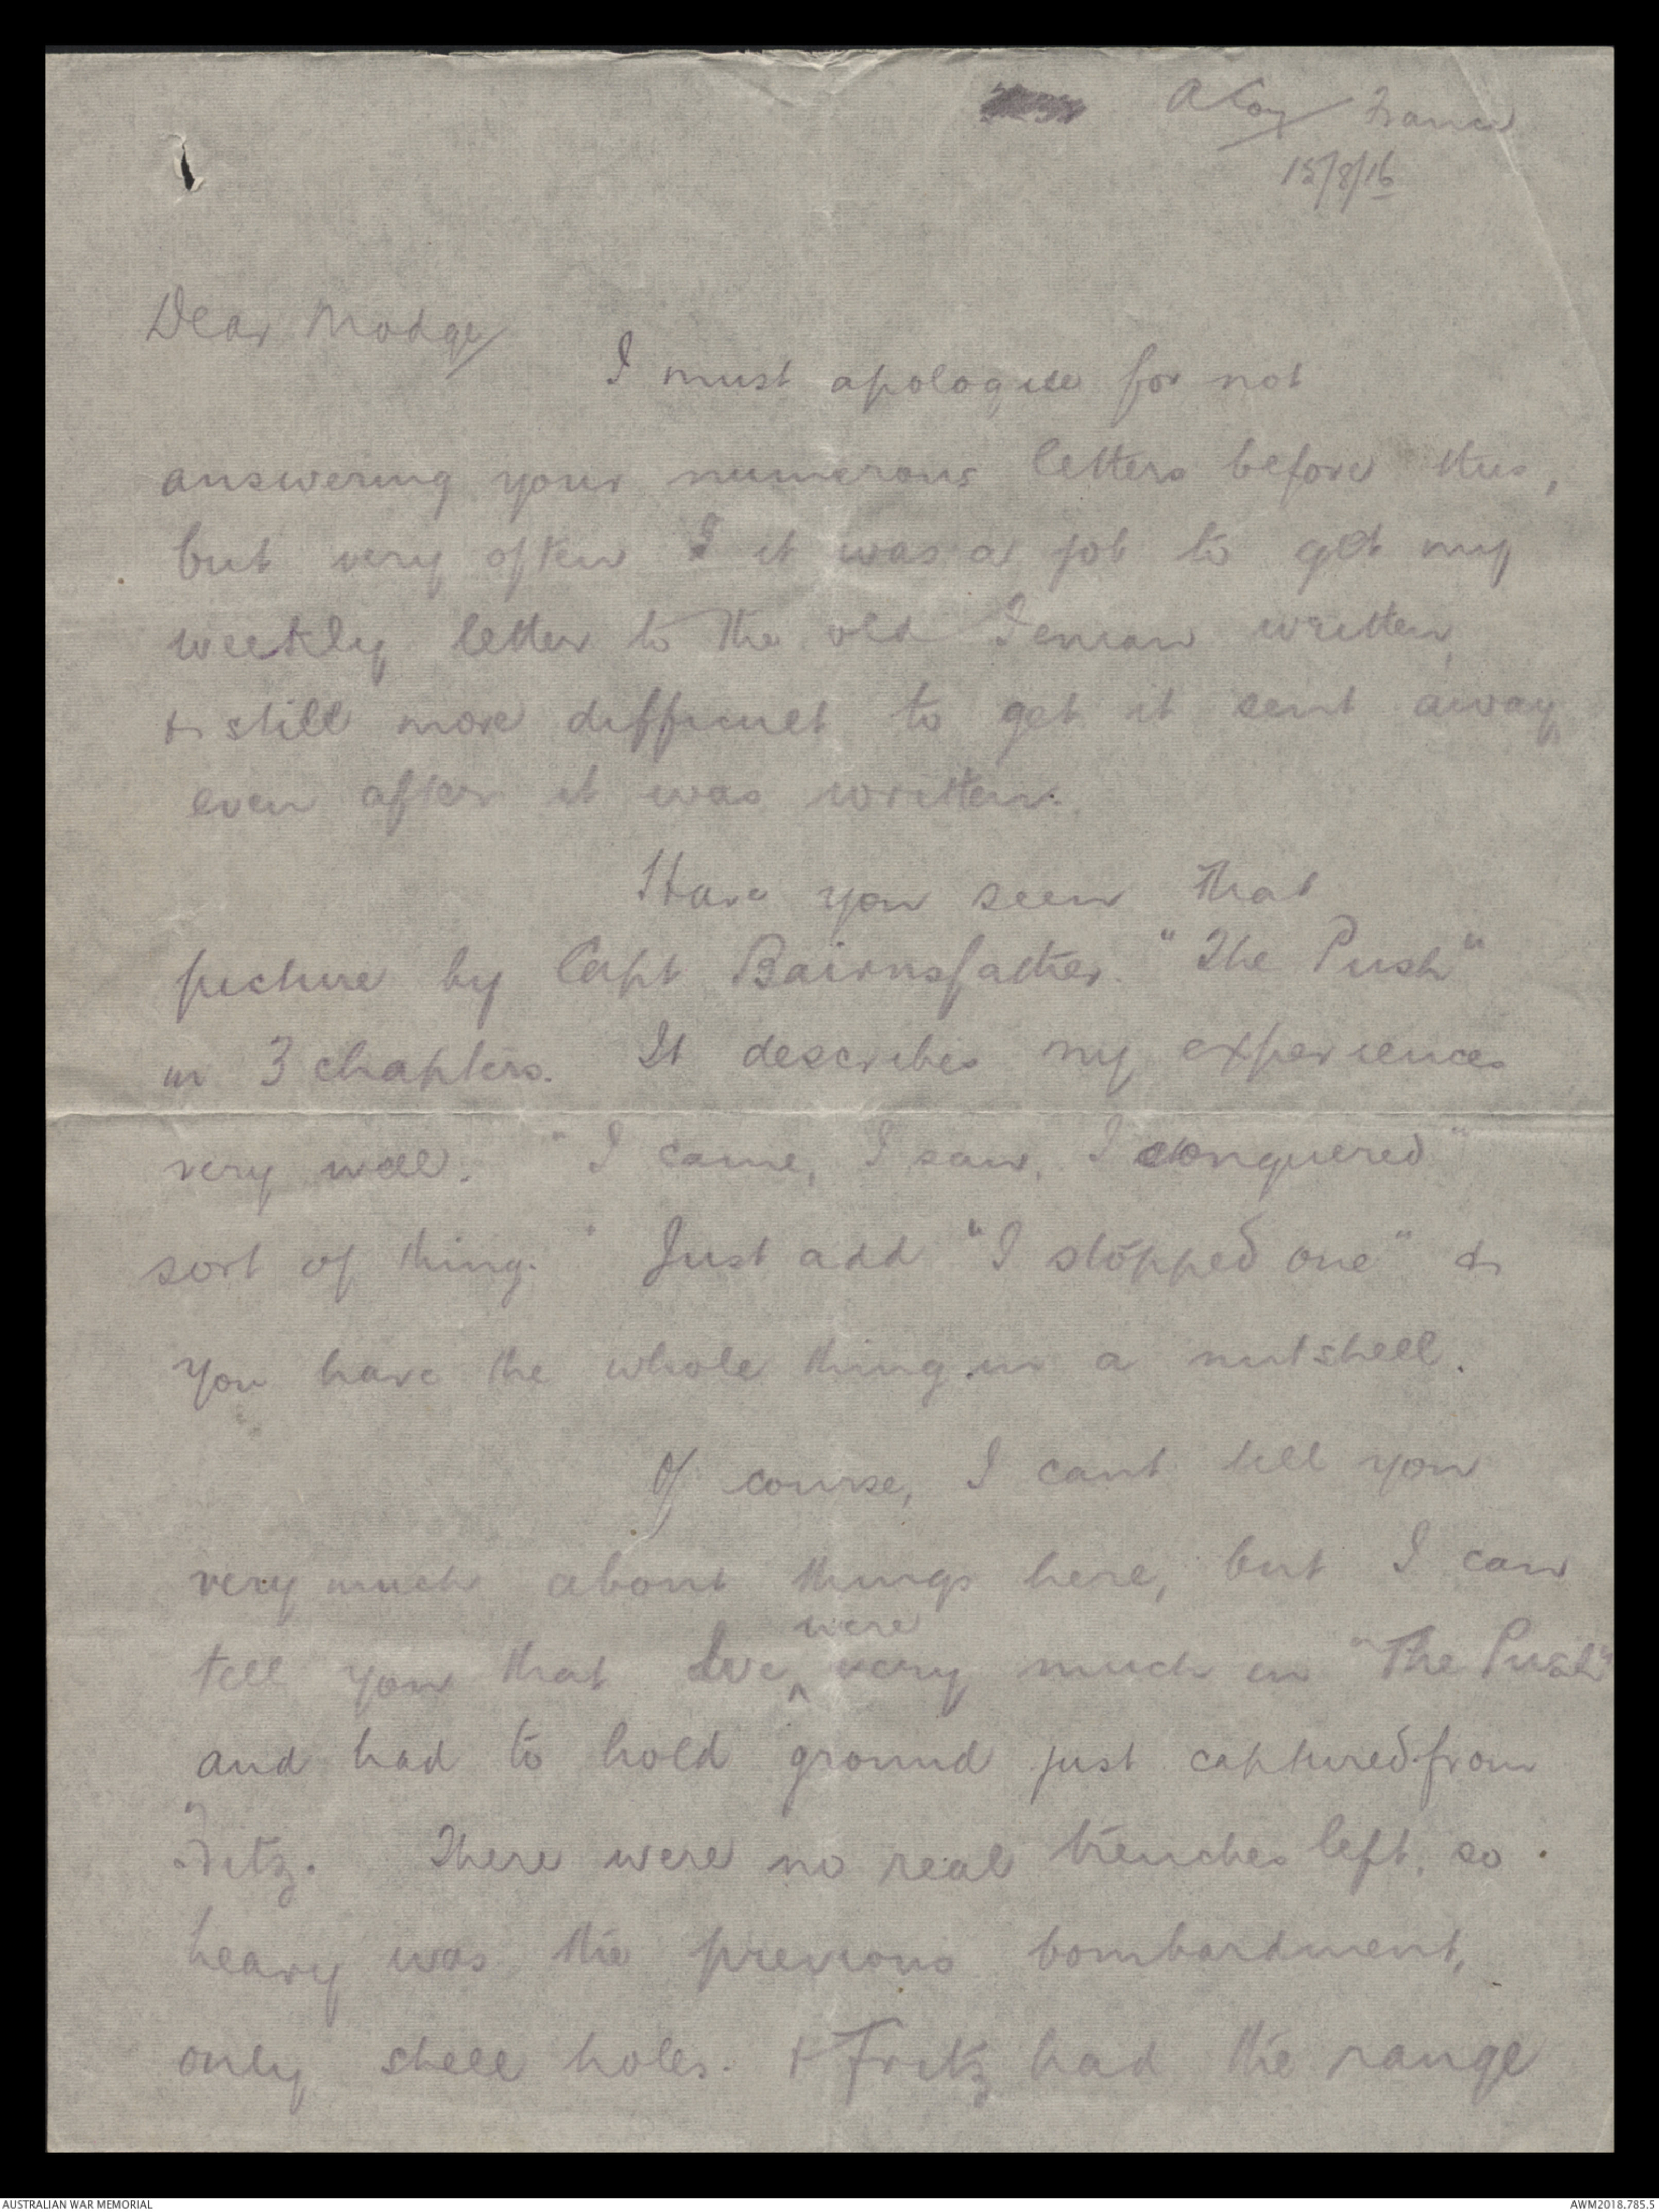 A Coy France
15/8/16
Dear Madge
I must apologise for not
answering your numerous letters before this,
but very often it was a job to get my
weekly letter to the old written
& still more difficult to get it sent away
even after it was written.
Have you seen that
picture by Capt Bairnsfather. "The Push"
in 3 chapters. It describes my experiences
very well. "I came, I saw, I conquered"
sort of thing." Just add "I stopped one" &
you have the whole thing in a nutshell.
Of course, I cant tell you
very much about things here, but I can
were
tell you that We very much in "The Push"
and had to hold ground just captured from
Fritz. There were no real trenches left, so
heavy was the previous bombardment,
only shell holes. & Fritz had the range
AUSTRALIAN WAR MEMORIAL AWM2018.785.5